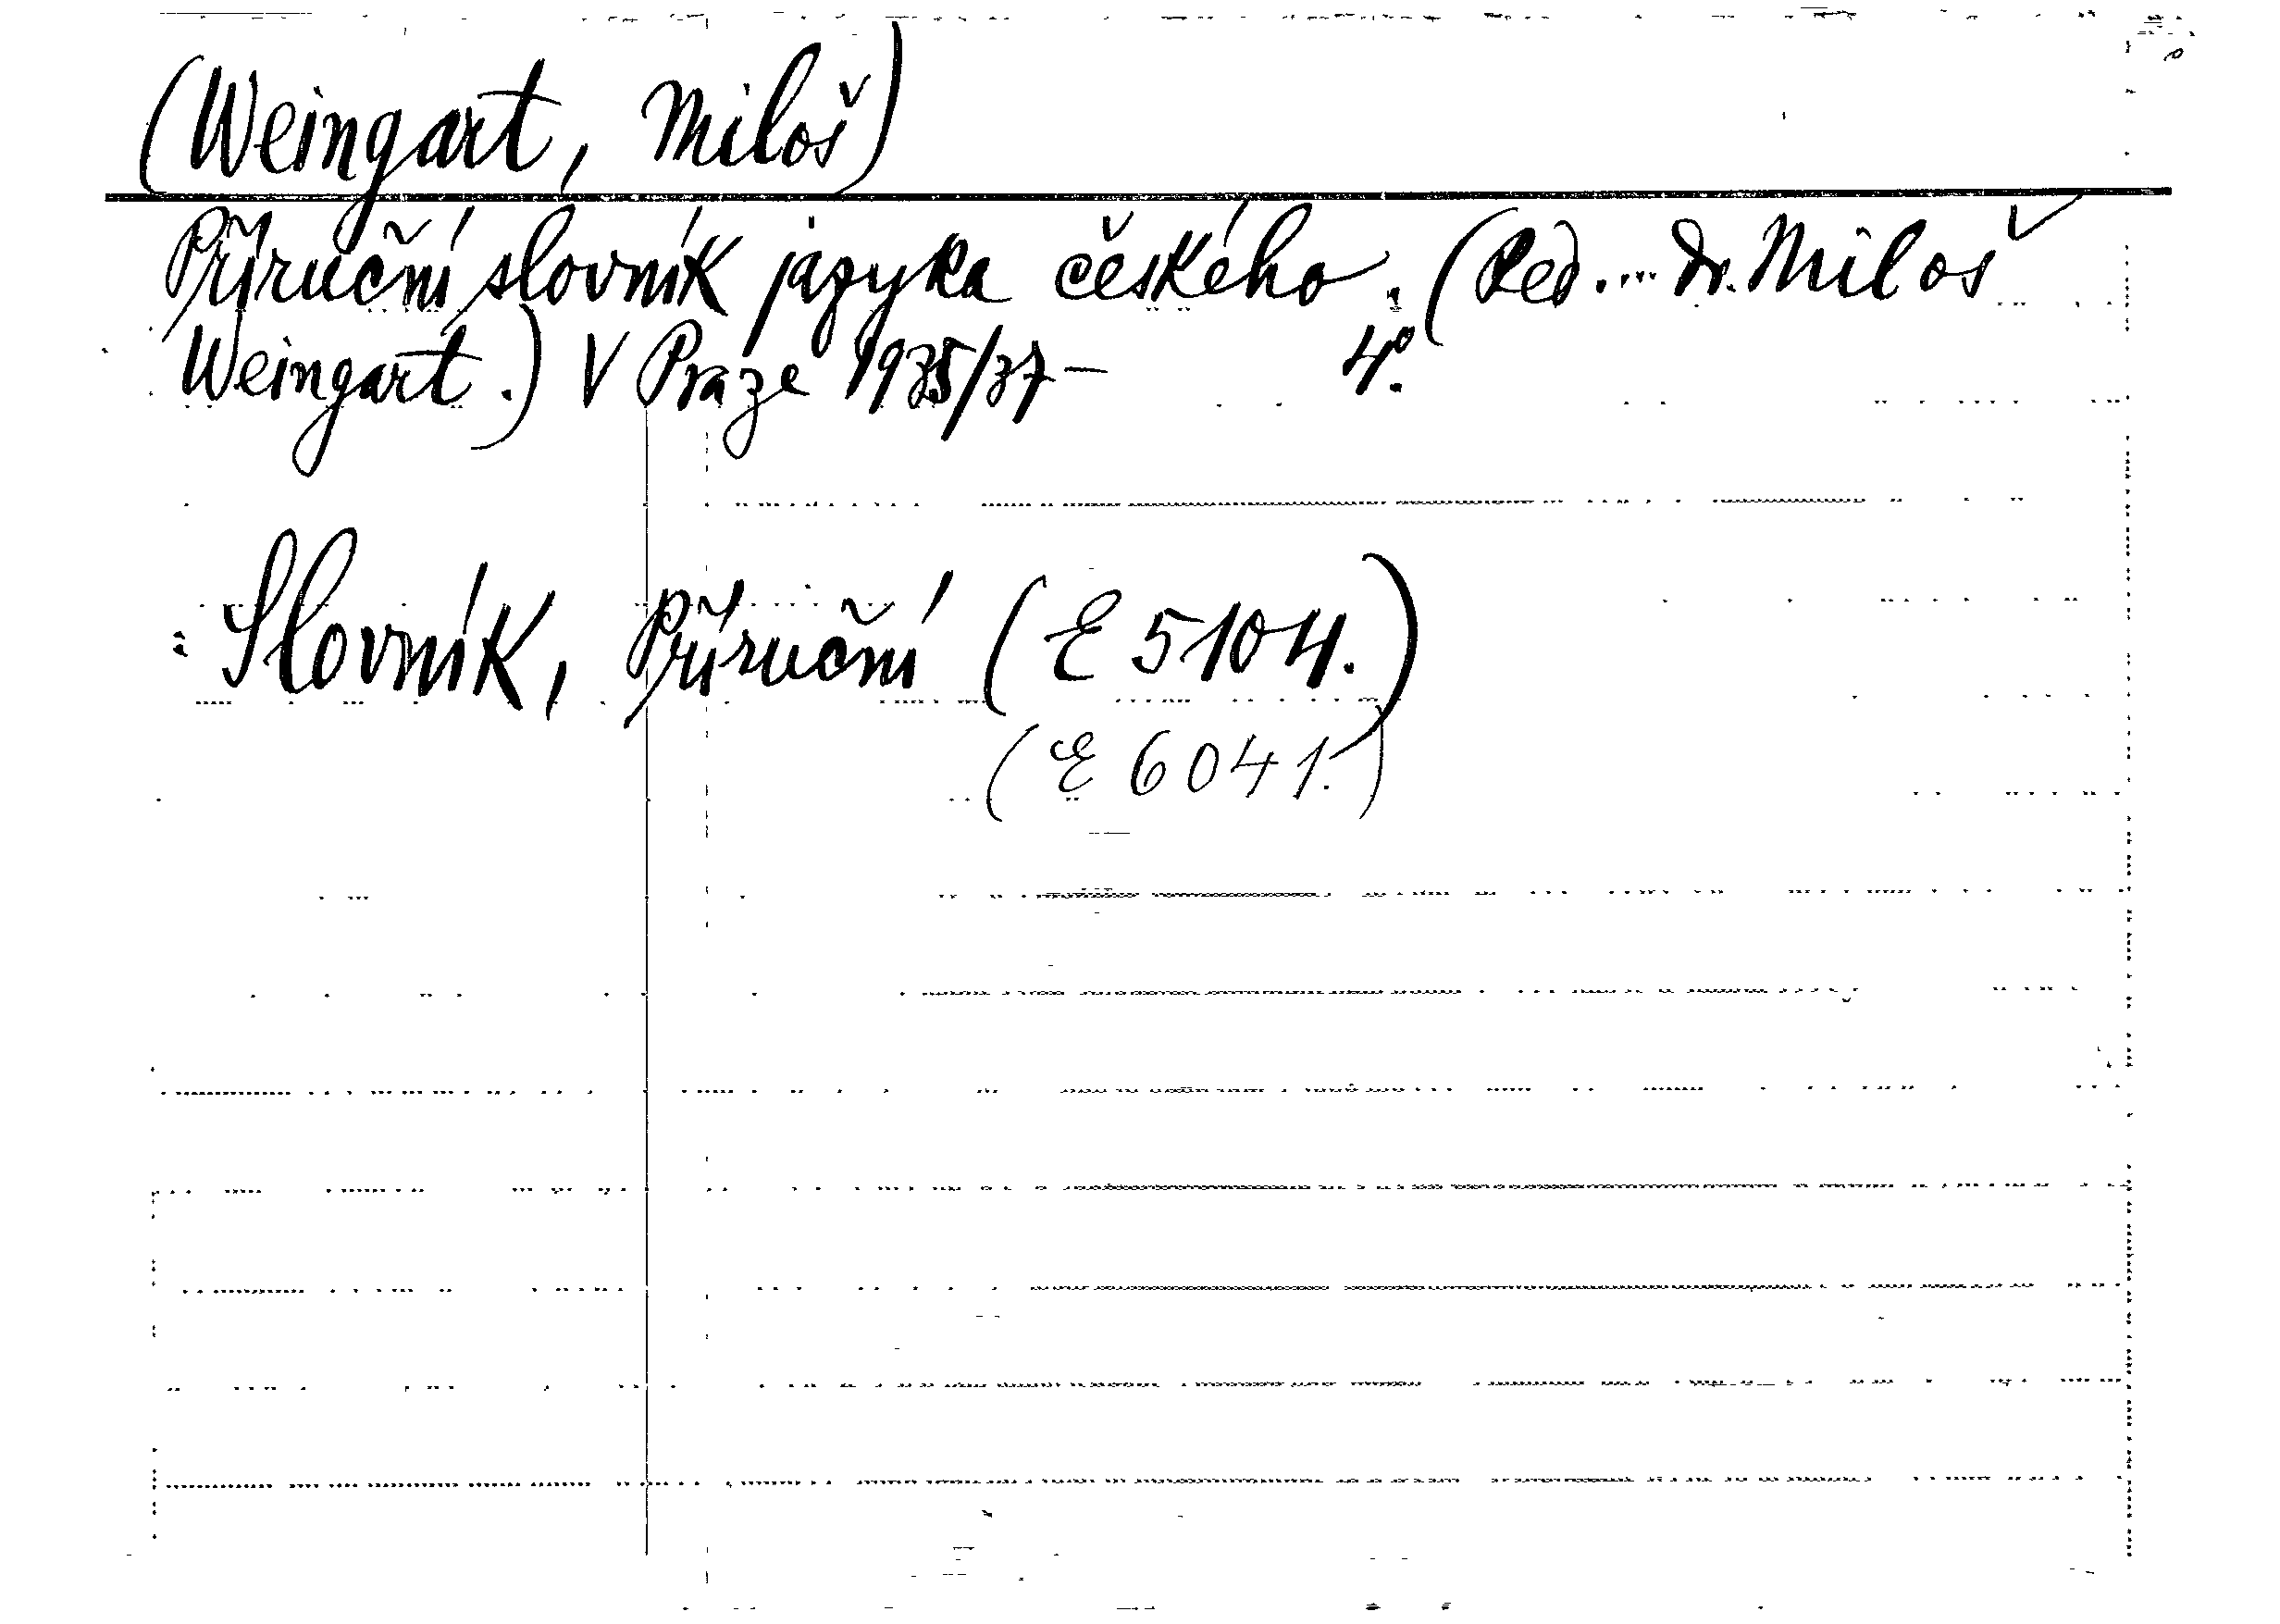 (Weingart, Miloš)
Příruční slovník jazyka českého. (Red. ... Dr. Miloš
Weingart.) V Praze 1935/37– 4°.
: Slovník, Příruční (E 5104.)
(E 6041.)